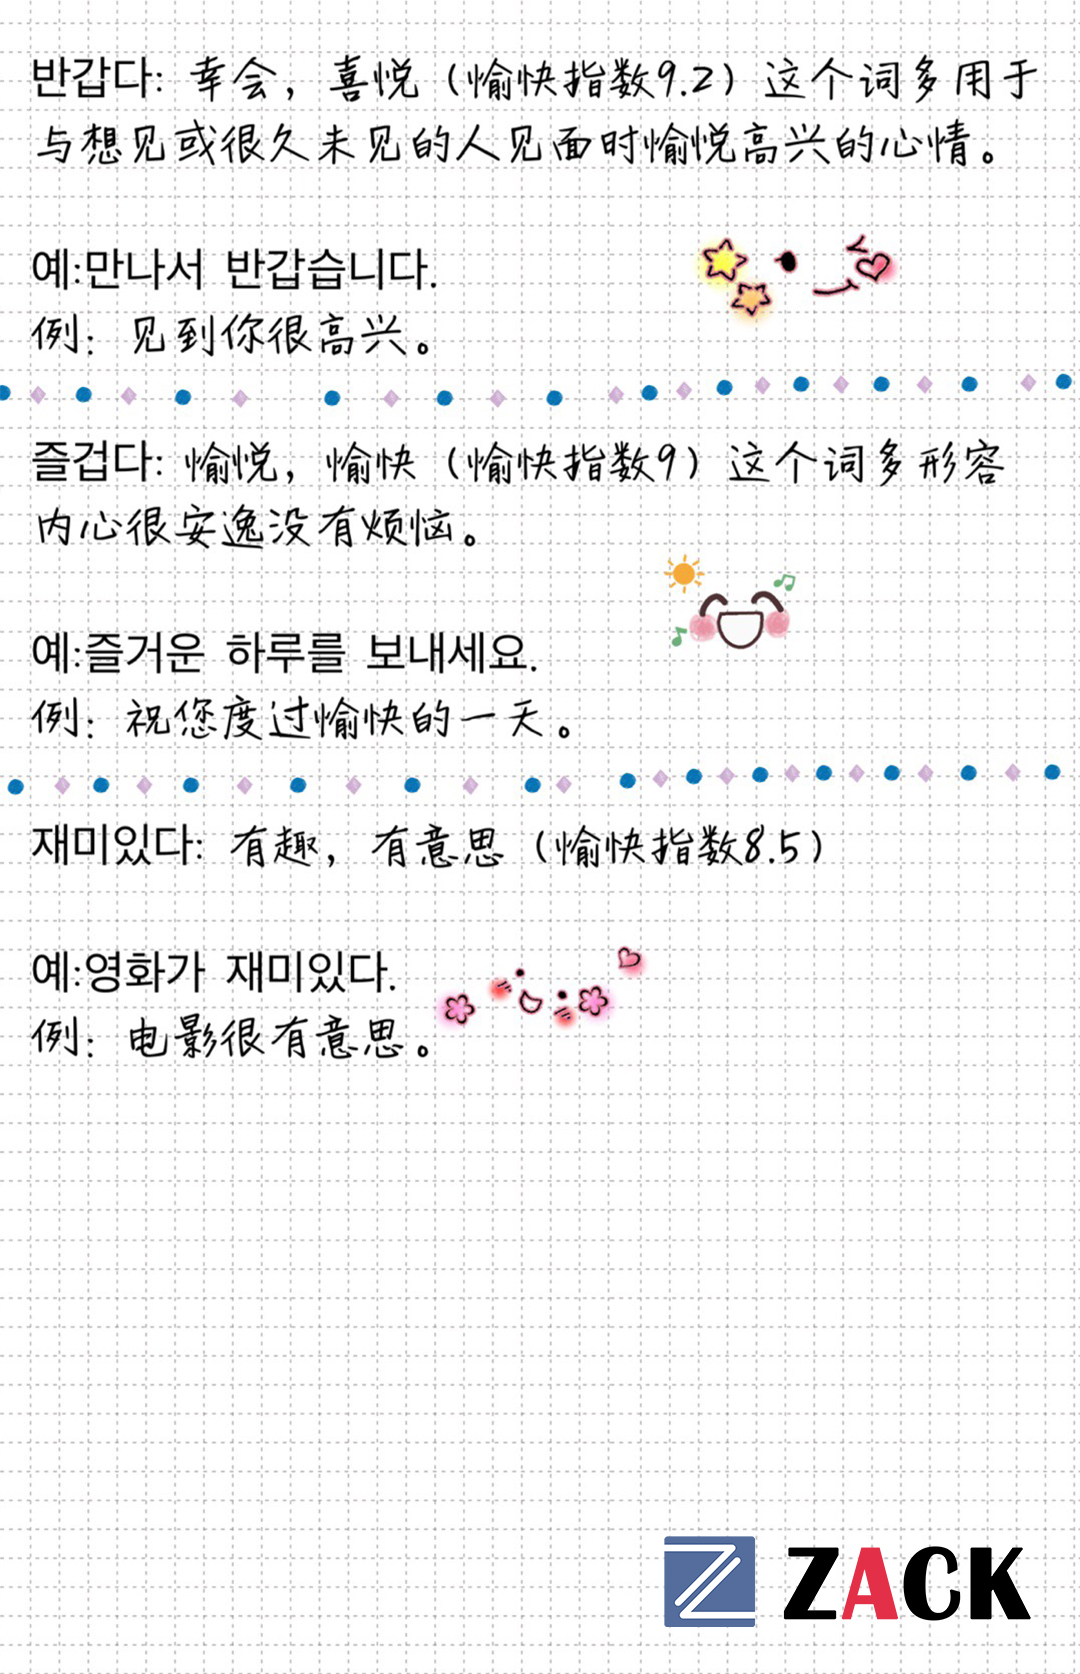 반갑다: 幸会，喜悦（愉快指数9.2）这个词多用于
与想见或很久未见的人见面时愉悦高兴的心情。
예:만나서 반갑습니다.
例：见到你很高兴。
즐겁다: 愉悦，愉快（愉快指数9）这个词多形容
内心很安逸没有烦恼。
예:즐거운 하루를 보내세요.
例：祝您度过愉快的一天。
재미있다: 有趣，有意思（愉快指数8.5）
예:영화가 재미있다.
例：电影很有意思。
ZACK